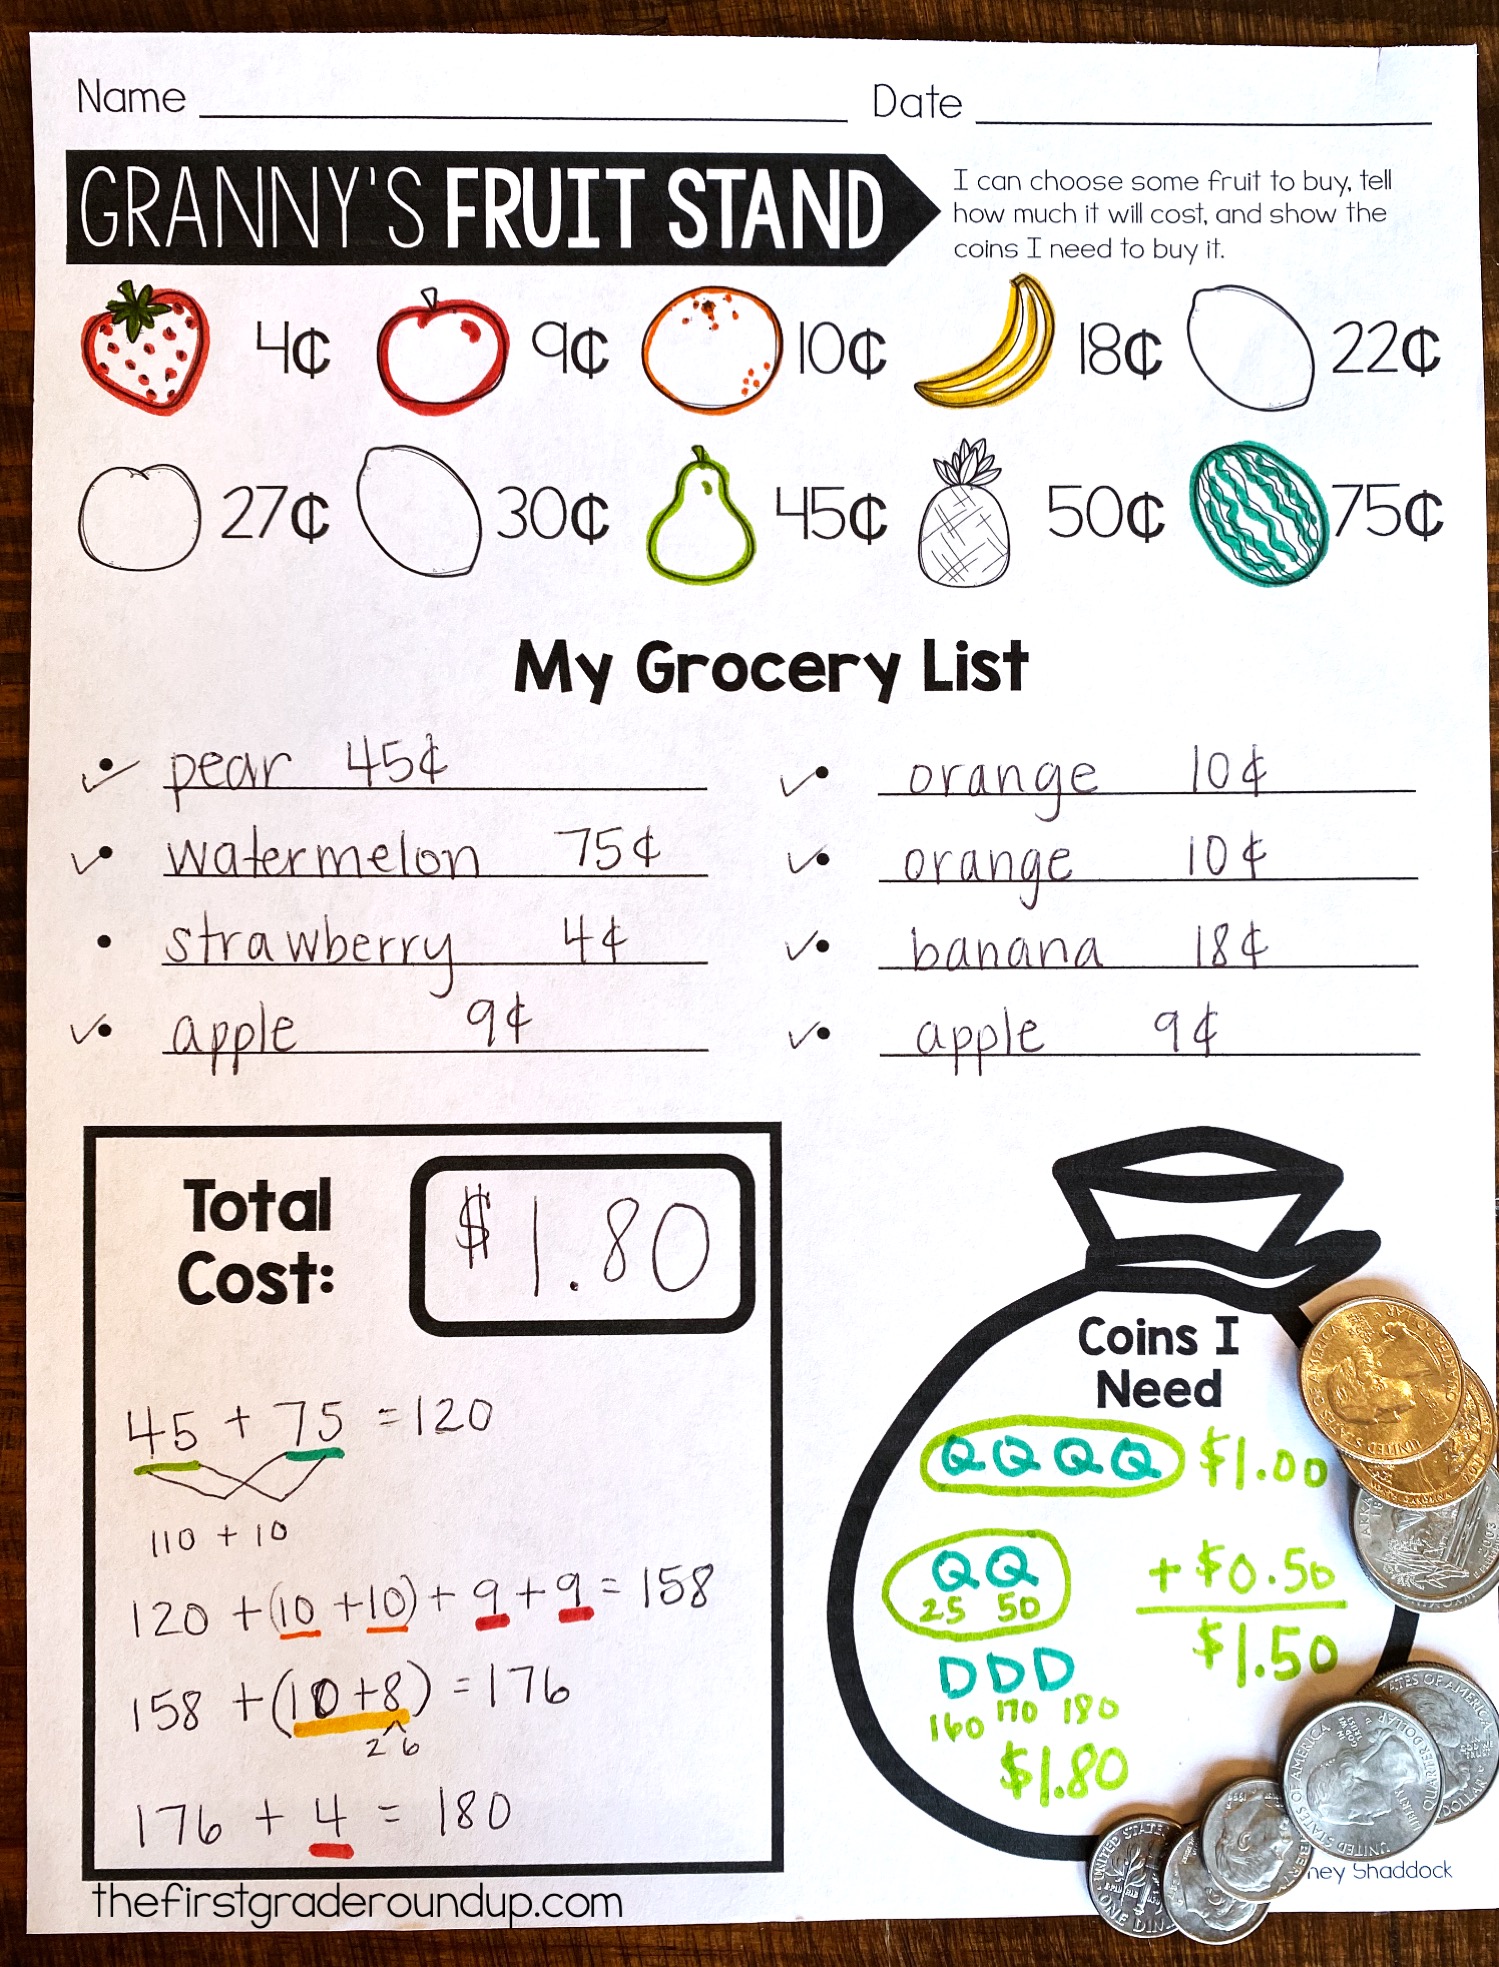 Name Date
GRANNY'S FRUIT STAND
I can choose some fruit to buy, tell
how much it will cost, and show the
coins I need to buy it.
4¢ 9¢ 10¢ 18¢ 22¢
27¢ 30¢ 45¢ 50¢ 75¢
My Grocery List
pear 45¢
watermelon 75¢
strawberry 4¢
apple 9¢
orange 10¢
orange 10¢
banana 18¢
apple 9¢
Total
Cost:
$1.80
45 + 75 = 120
110 + 10
120 + (10 + 10) + 9 + 9 = 158
158 + (10 + 8) = 176
2 6
176 + 4 = 180
Coins I
Need
Q Q Q Q $1.00
Q Q
25 50
+ $0.50
$1.50
D D D
160 170 180
$1.80
thefirstgraderoundup.com
Shaddock